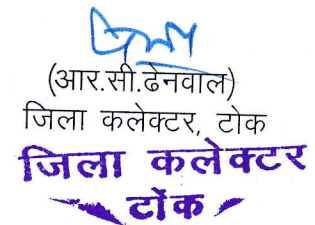 (आर.सी.ढेनवाल)
जिला कलेक्टर, टोक
जिला कलेक्टर
टोंक